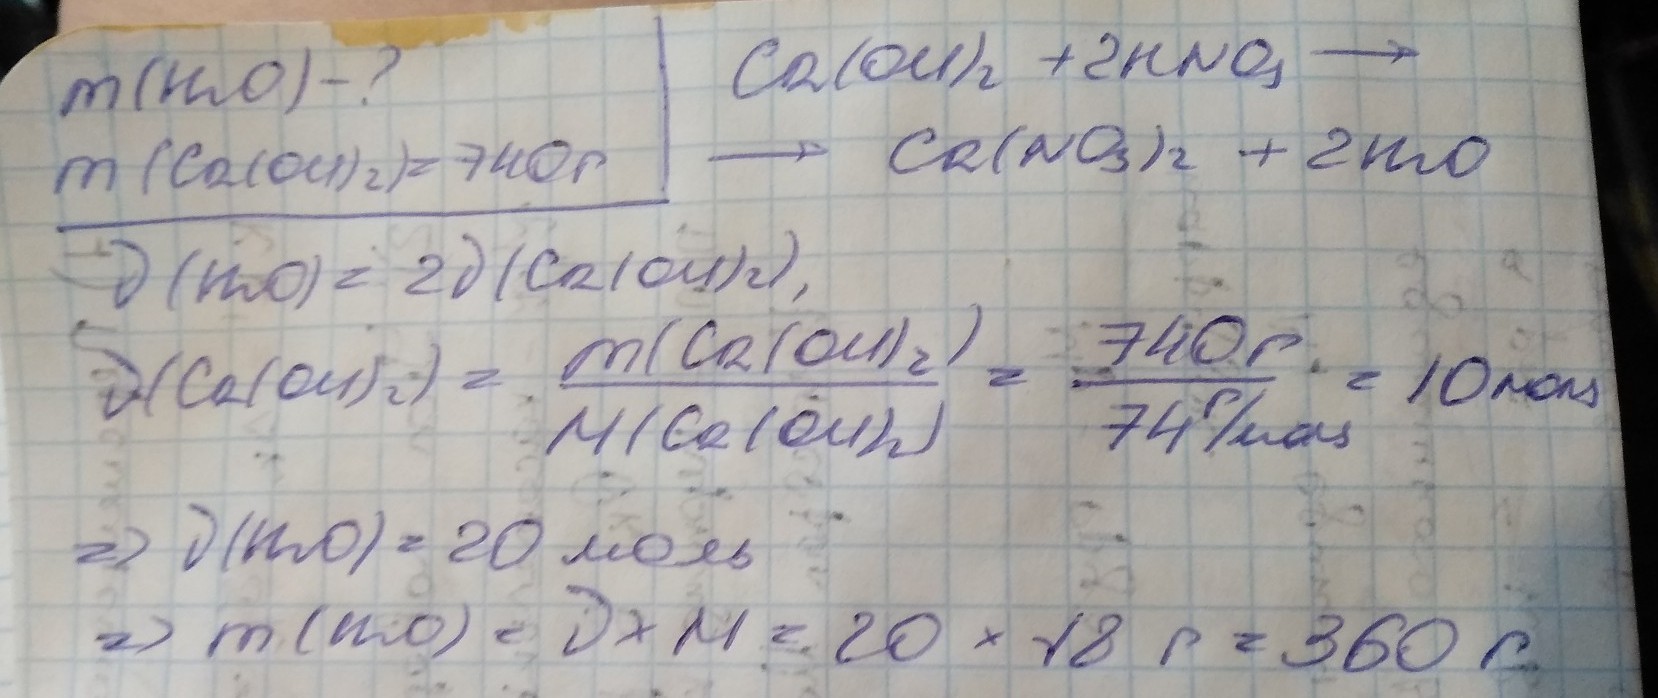 m(H₂O) - ?
m(Ca(OH)₂) = 740 г
Ca(OH)₂ + 2HNO₃ →
→ Ca(NO₃)₂ + 2H₂O
ν(H₂O) = 2ν(Ca(OH)₂),
ν(Ca(OH)₂) = m(Ca(OH)₂) / M(Ca(OH)₂) = 740 г / 74 г/моль = 10 моль
=> ν(H₂O) = 20 моль
=> m(H₂O) = ν × M = 20 × 18 г = 360 г